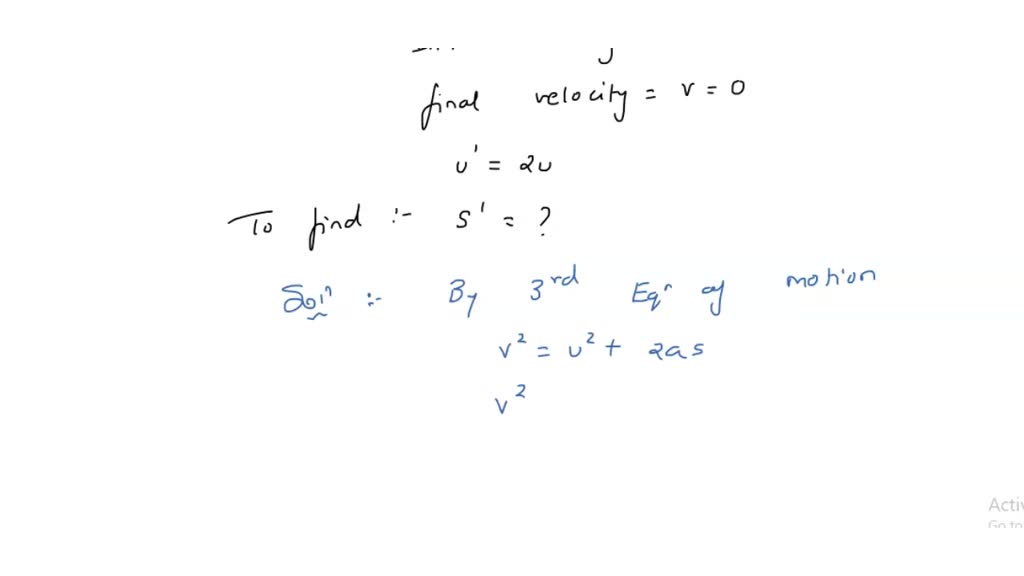 final velocity = v = 0
u' = 2u
To find :- s' = ?
Sol^n :- By 3^rd Eq^n of motion
v² = u² + 2as
v²
Activ
Go to